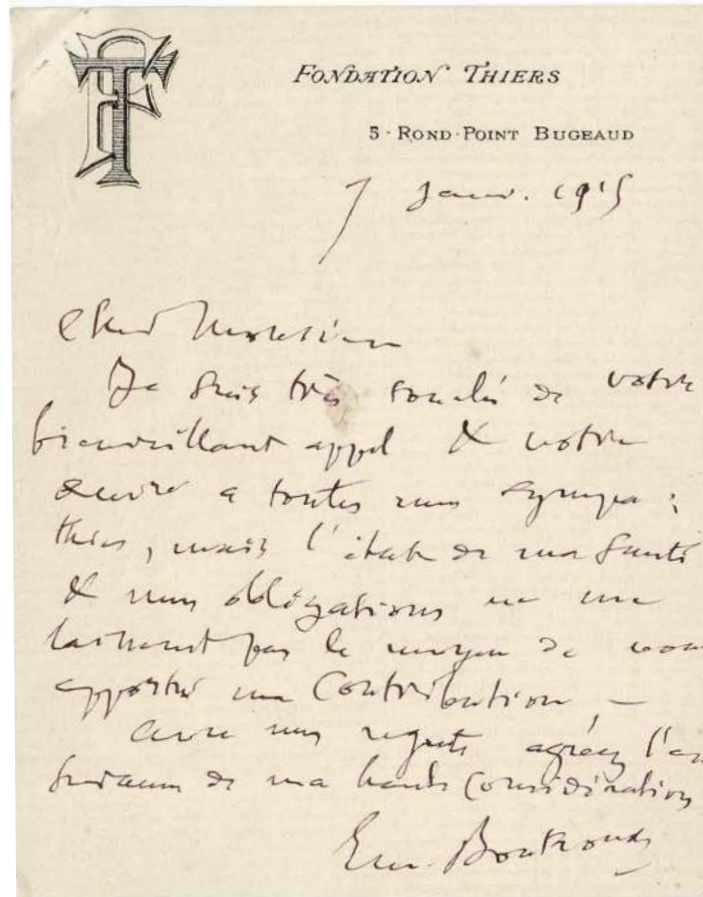 FT
FONDATION THIERS
5 · ROND-POINT BUGEAUD
7 janv. 1915
Cher Monsieur
Je suis très touché de votre
bienveillant appel & votre
œuvre a toutes mes sympa-
thies, mais l'état de ma santé
& mes obligations ne me
laissent pas le moyen de vous
apporter ma contribution –
Avec mes regrets, agréez l'as
surance de ma haute considération
Em. Boutroux